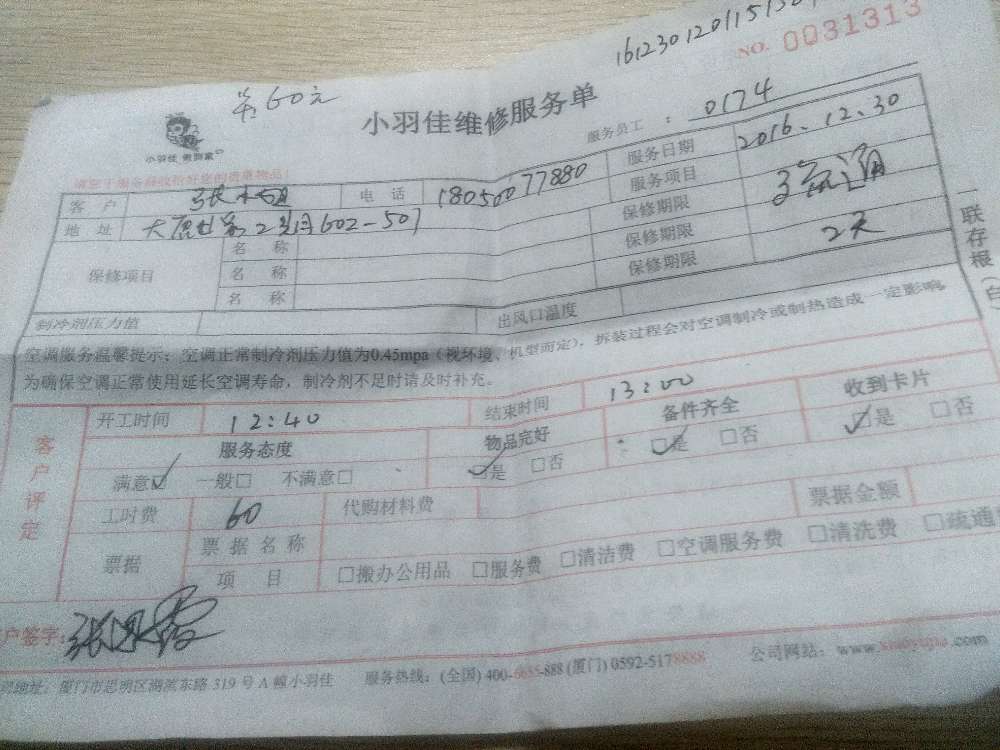 NO. 0031313
小羽佳维修服务单
服务员工 : 0174
小羽佳
客 户
电 话 18050077880
服务日期 2016.12.30
地 址
服务项目
保修项目
名 称
名 称
名 称
保修期限
保修期限 2天
保修期限
制冷剂压力值
出风口温度
一联存根
空调服务温馨提示：空调正常制冷剂压力值为0.45mpa（视环境、机型而定），拆装过程会对空调制冷或制热造成一定影响。
为确保空调正常使用延长空调寿命，制冷剂不足时请及时补充。
客户评定
开工时间 12:40 结束时间 13:00
服务态度 物品完好 备件齐全 收到卡片
满意☑ 一般□ 不满意□ ☑是 □否 ☑是 □否 ☑是 □否
工时费 60 代购材料费 票据金额
票据 票据名称
项 目 □搬办公用品 □服务费 □清洁费 □空调服务费 □清洗费 □疏通
户签字:
地址: 厦门市思明区湖滨东路 319 号 A 幢小羽佳 服务热线: (全国) 400-6655-888 (厦门) 0592-5178888 公司网站: www.xiaoyujia.com